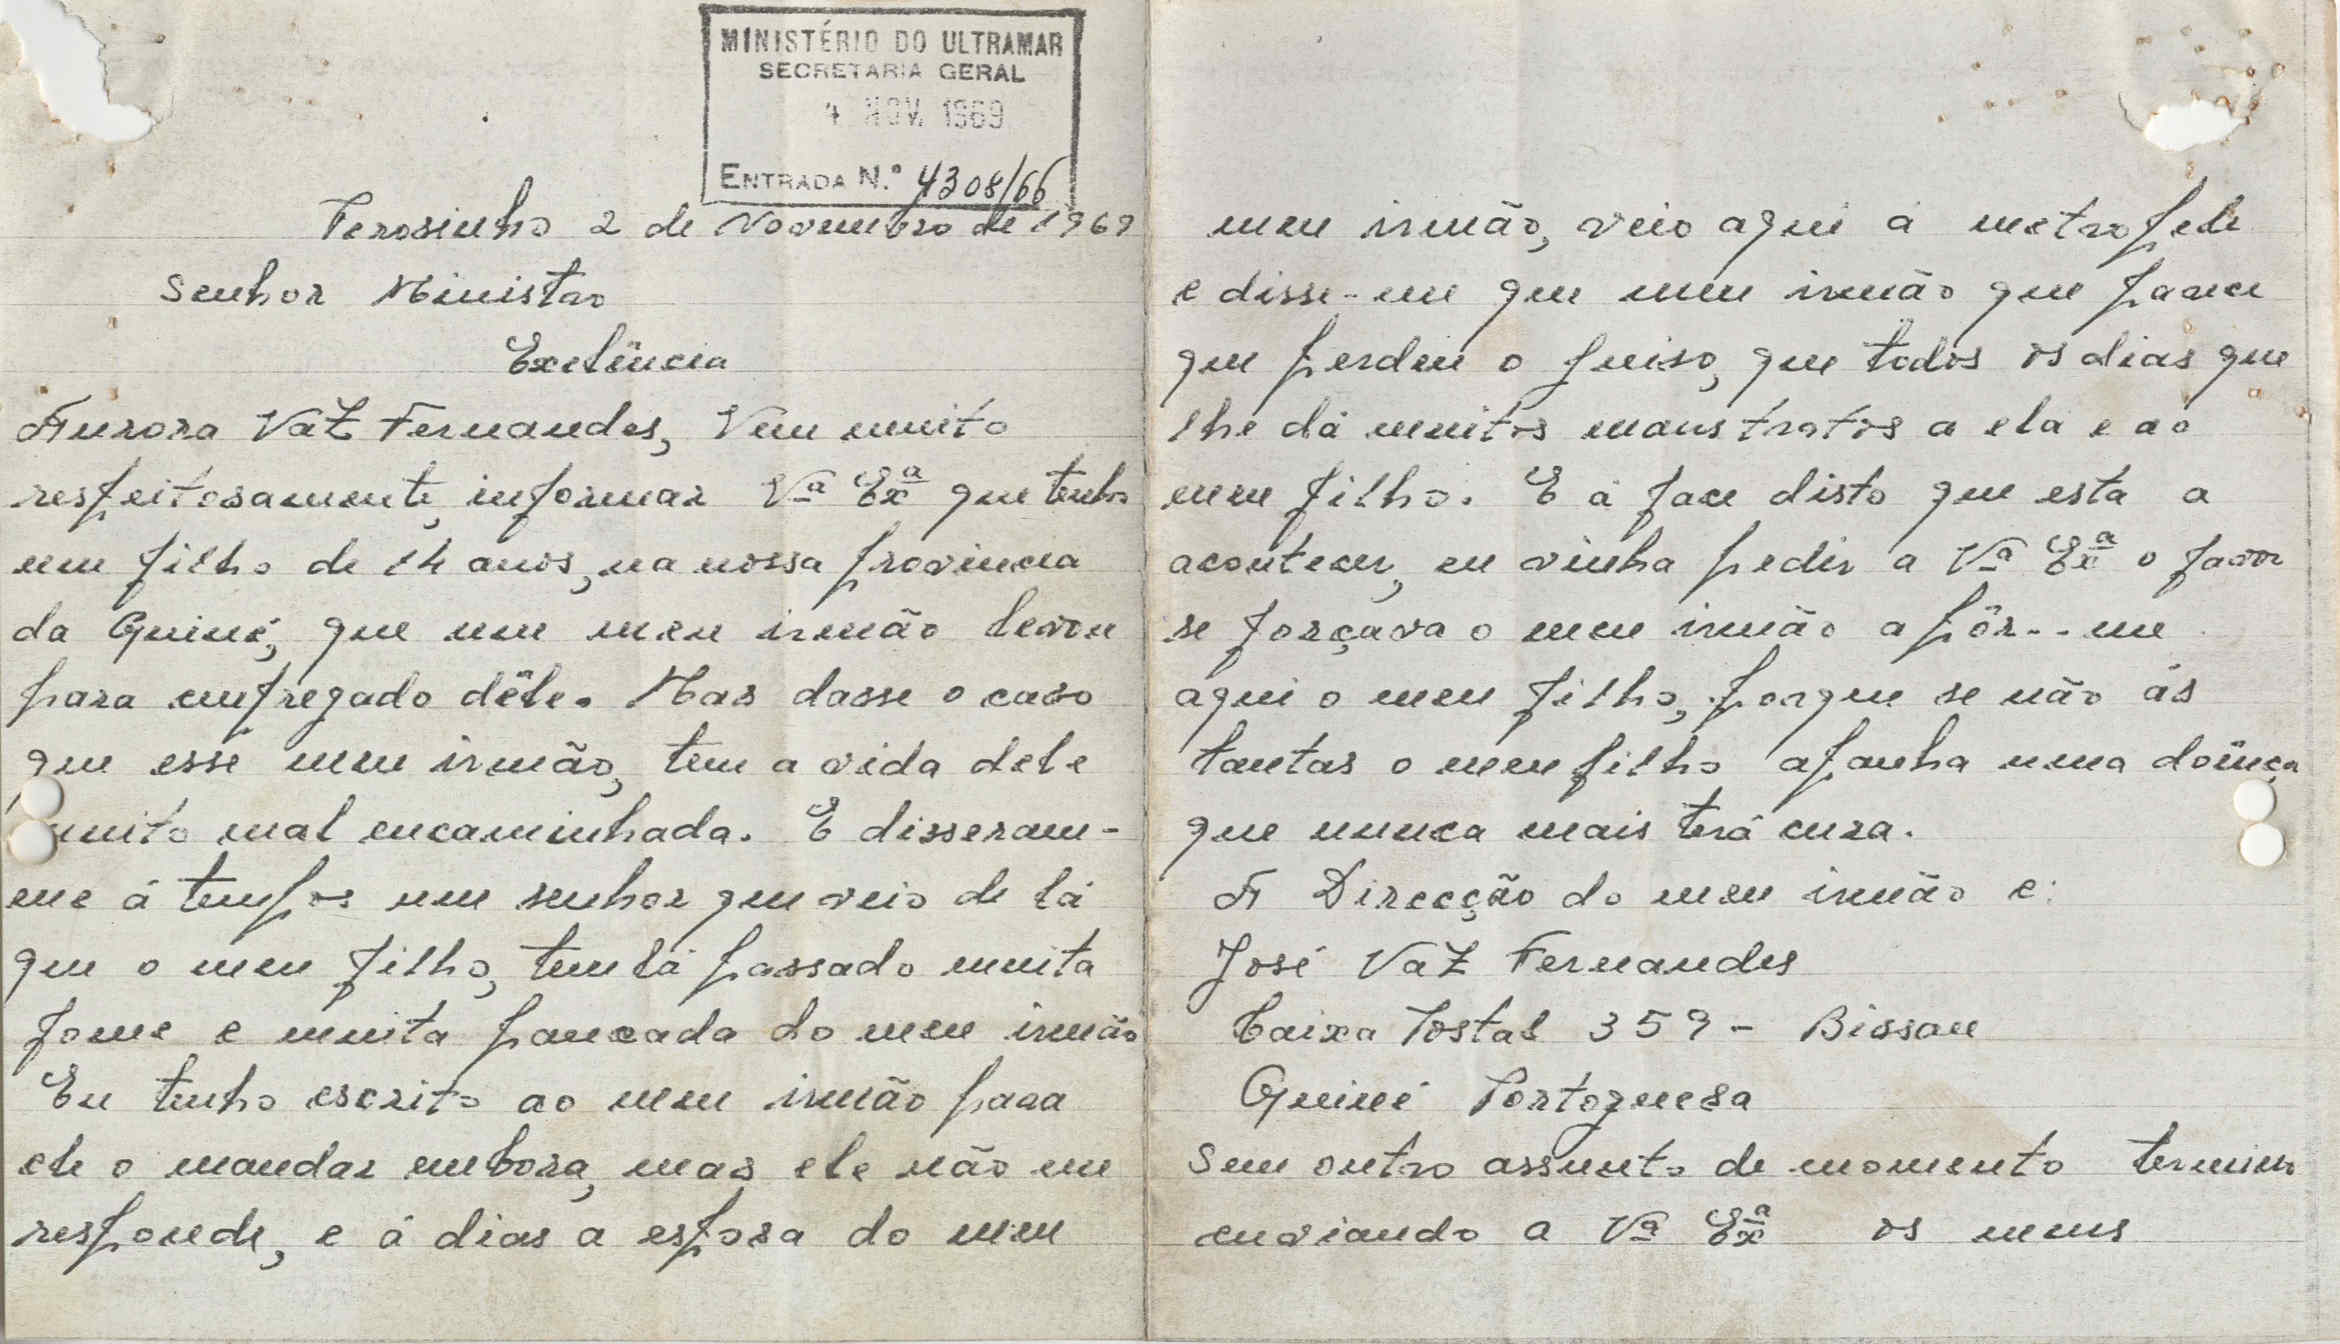 MINISTÉRIO DO ULTRAMAR
SECRETARIA GERAL
4 NOV. 1969
ENTRADA N.º 4308/66
Ferosinho 2 de Novembro de 1969
Senhor Ministro
Exelência
Aurora Vaz Fernandes, Vem muito
respeitosamente, informar Vª Exª que tenho
um filho de 14 anos, na nossa provincia
da Guiné, que um meu irmão levou
para empregado dêle. Mas dasse o caso
que esse meu irmão, tem a vida dele
muito mal encaminhada. E disseram-
me á tempos um senhor que veio de lá
que o meu filho, tem lá passado muita
fome e muita pancada do meu irmão
Eu tenho escrito ao meu irmão para
ele o mandar embora, mas ele não me
responde, e á dias a esposa do meu
meu irmão, veio aqui á metropele
e disse-me que meu irmão que parece
que perdeu o juiso, que todos os dias que
lhe dá muitos maus tratos a ela e ao
meu filho. E á face disto que esta a
acontecer, eu vinha pedir a Vª Exª o favor
se forçava o meu irmão a pôr--me
aqui o meu filho, porque se não ás
tantas o meu filho apanha uma doênça
que nunca mais terá cura.
A Direcção do meu irmão e:
José Vaz Fernandes
Caixa Postal 359 - Bissau
Guiné Portoguesa
Sem outro assunto de momento termino
enviando a Vª Exª os meus